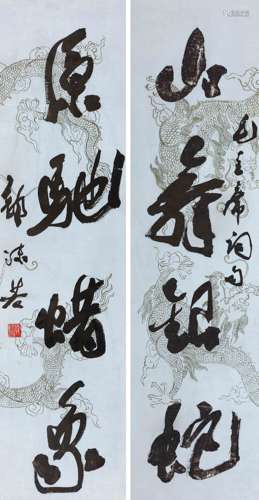 山舞銀蛇
毛主席詞句
原馳蜡象
郭沫若